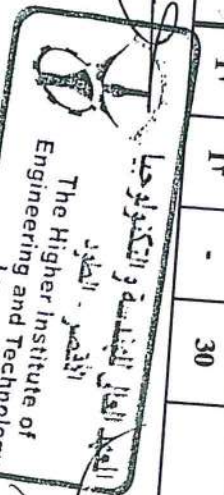 - 30
المعهد العالي للهندسة و التكنولوجيا
الأقصر - الطود
The Higher Institute of
Engineering and Technology